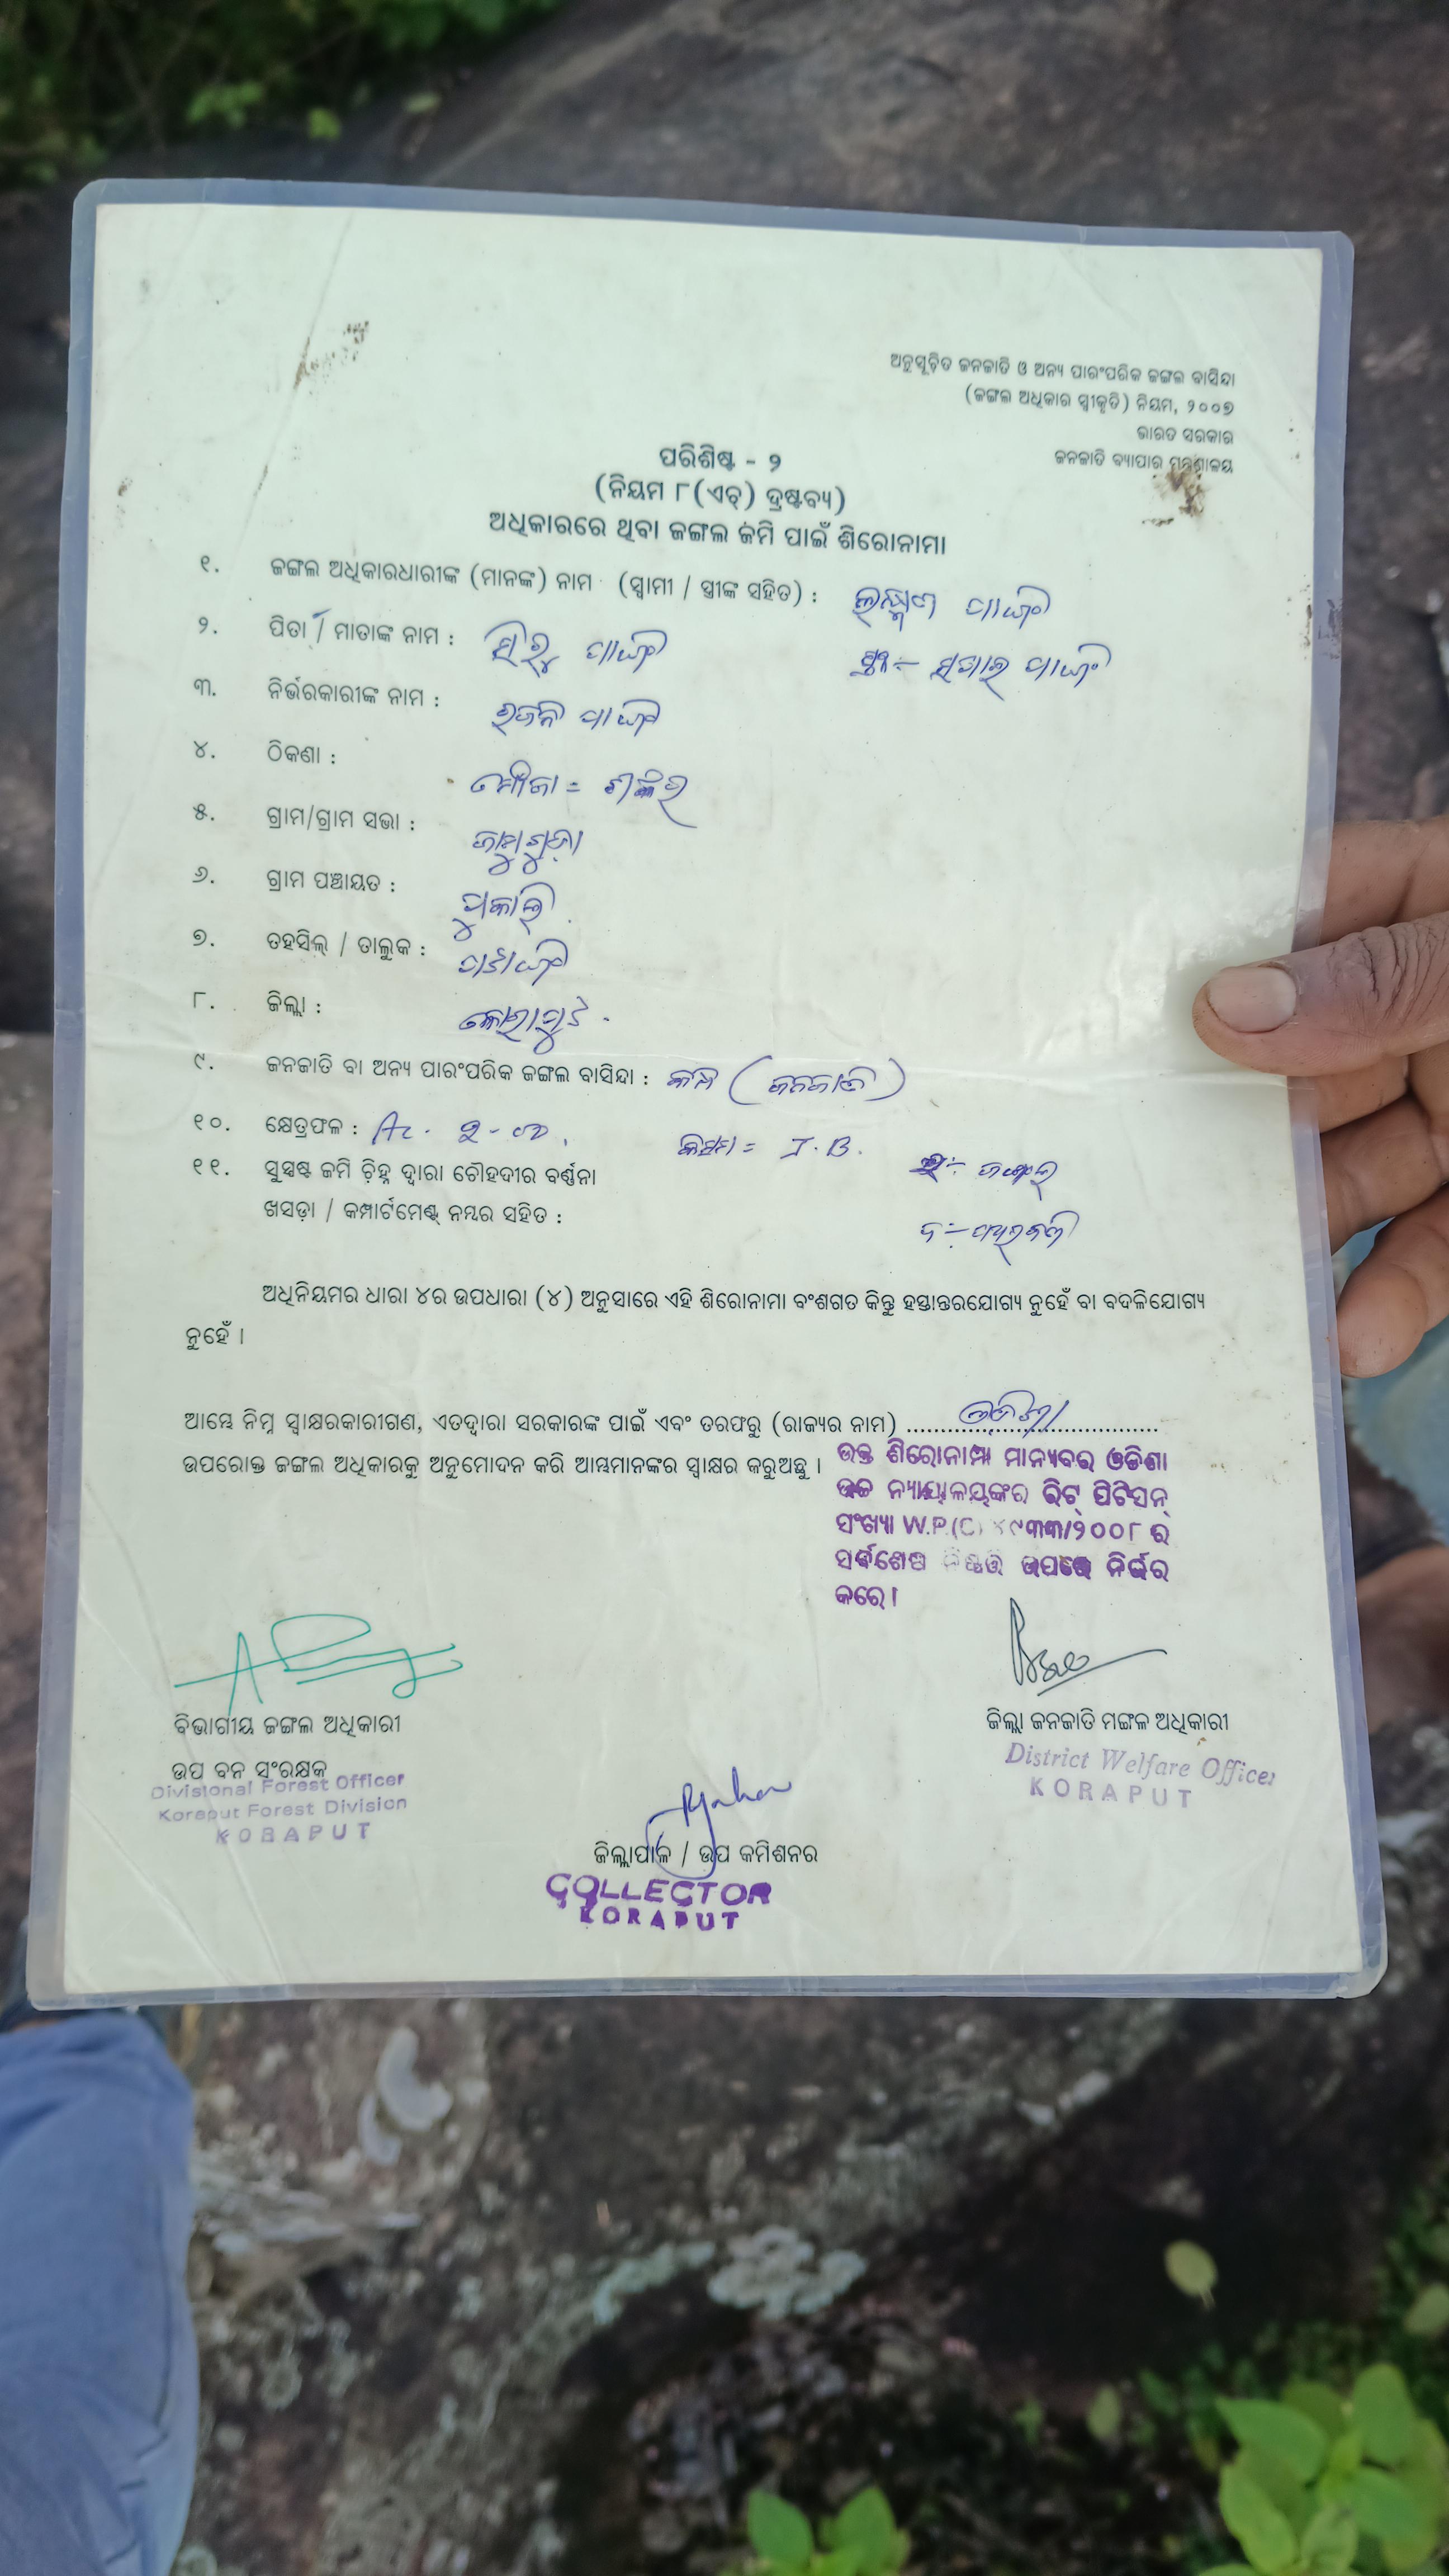 ଅନୁସୂଚିତ ଜନଜାତି ଓ ଅନ୍ୟ ପାରଂପରିକ ଜଙ୍ଗଲ ବାସିନ୍ଦା
(ଜଙ୍ଗଲ ଅଧିକାର ସ୍ୱୀକୃତି) ନିୟମ, ୨୦୦୭
ଭାରତ ସରକାର
ଜନଜାତି ବ୍ୟାପାର ମନ୍ତ୍ରଣାଳୟ
ପରିଶିଷ୍ଟ - ୨
(ନିୟମ ୮(ଏଚ୍) ଦ୍ରଷ୍ଟବ୍ୟ)
ଅଧିକାରରେ ଥିବା ଜଙ୍ଗଲ ଜମି ପାଇଁ ଶିରୋନାମା
୧. ଜଙ୍ଗଲ ଅଧିକାରଧାରୀଙ୍କ (ମାନଙ୍କ) ନାମ (ସ୍ୱାମୀ / ସ୍ତ୍ରୀଙ୍କ ସହିତ) : ଲକ୍ଷ୍ମଣ ପାଙ୍ଗି
୨. ପିତା / ମାତାଙ୍କ ନାମ : ପାଙ୍ଗି ସ୍ତ୍ରୀ :- ପାଙ୍ଗି
୩. ନିର୍ଭରକାରୀଙ୍କ ନାମ : ପାଙ୍ଗି
୪. ଠିକଣା : ମୌଜା =
୫. ଗ୍ରାମ/ଗ୍ରାମ ସଭା : ଜାମୁଗୁଡ଼ା
୬. ଗ୍ରାମ ପଞ୍ଚାୟତ :
୭. ତହସିଲ୍ / ତାଲୁକ : ପଟାଙ୍ଗି
୮. ଜିଲ୍ଲା : କୋରାପୁଟ
୯. ଜନଜାତି ବା ଅନ୍ୟ ପାରଂପରିକ ଜଙ୍ଗଲ ବାସିନ୍ଦା : କନ୍ଧ (ଜନଜାତି)
୧୦. କ୍ଷେତ୍ରଫଳ : Ac. ୨-୦୦ କିସମ = J.B.
୧୧. ସୁସ୍ପଷ୍ଟ ଜମି ଚିହ୍ନ ଦ୍ୱାରା ଚୌହଦୀର ବର୍ଣ୍ଣନା
ଖସଡ଼ା / କମ୍ପାର୍ଟମେଣ୍ଟ୍ ନମ୍ବର ସହିତ :
ଅଧିନିୟମର ଧାରା ୪ର ଉପଧାରା (୪) ଅନୁସାରେ ଏହି ଶିରୋନାମା ବଂଶଗତ କିନ୍ତୁ ହସ୍ତାନ୍ତରଯୋଗ୍ୟ ନୁହେଁ ବା ବଦଳିଯୋଗ୍ୟ
ନୁହେଁ ।
ଆମ୍ଭେ ନିମ୍ନ ସ୍ୱାକ୍ଷରକାରୀଗଣ, ଏତଦ୍ୱାରା ସରକାରଙ୍କ ପାଇଁ ଏବଂ ତରଫରୁ (ରାଜ୍ୟର ନାମ) ଓଡିଶା
ଉପରୋକ୍ତ ଜଙ୍ଗଲ ଅଧିକାରକୁ ଅନୁମୋଦନ କରି ଆମ୍ଭମାନଙ୍କର ସ୍ୱାକ୍ଷର କରୁଅଛୁ ।
ଉକ୍ତ ଶିରୋନାମା ମାନ୍ୟବର ଓଡିଶା
ଉଚ୍ଚ ନ୍ୟାୟାଳୟଙ୍କର ରିଟ୍ ପିଟିସନ୍
ସଂଖ୍ୟା W.P.(C) ୪୯୩୩/୨୦୦୮ ର
ସର୍ବଶେଷ ନିଷ୍ପତ୍ତି ଉପରେ ନିର୍ଭର
କରେ।
ବିଭାଗୀୟ ଜଙ୍ଗଲ ଅଧିକାରୀ
ଉପ ବନ ସଂରକ୍ଷକ
Divisional Forest Officer
Koraput Forest Division
KORAPUT
ଜିଲ୍ଲା ଜନଜାତି ମଙ୍ଗଳ ଅଧିକାରୀ
District Welfare Officer
KORAPUT
ଜିଲ୍ଲାପାଳ / ଉପ କମିଶନର
COLLECTOR
KORAPUT